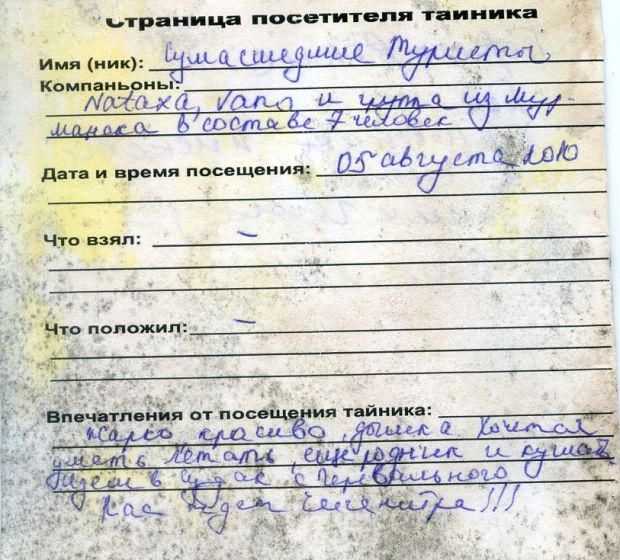 Страница посетителя тайника
Имя (ник): Сумасшедшие Туристы
Компаньоны:
Nataxa, Vano и группа из Мур-
манска в составе 7 человек
Дата и время посещения: 05 августа 2010
Что взял: –
Что положил: –
Впечатления от посещения тайника:
Жарко красиво, дымка Хочется
уметь летать, еще родник и кушать
Идем в Судак с Перевального
Нас ждет !!!